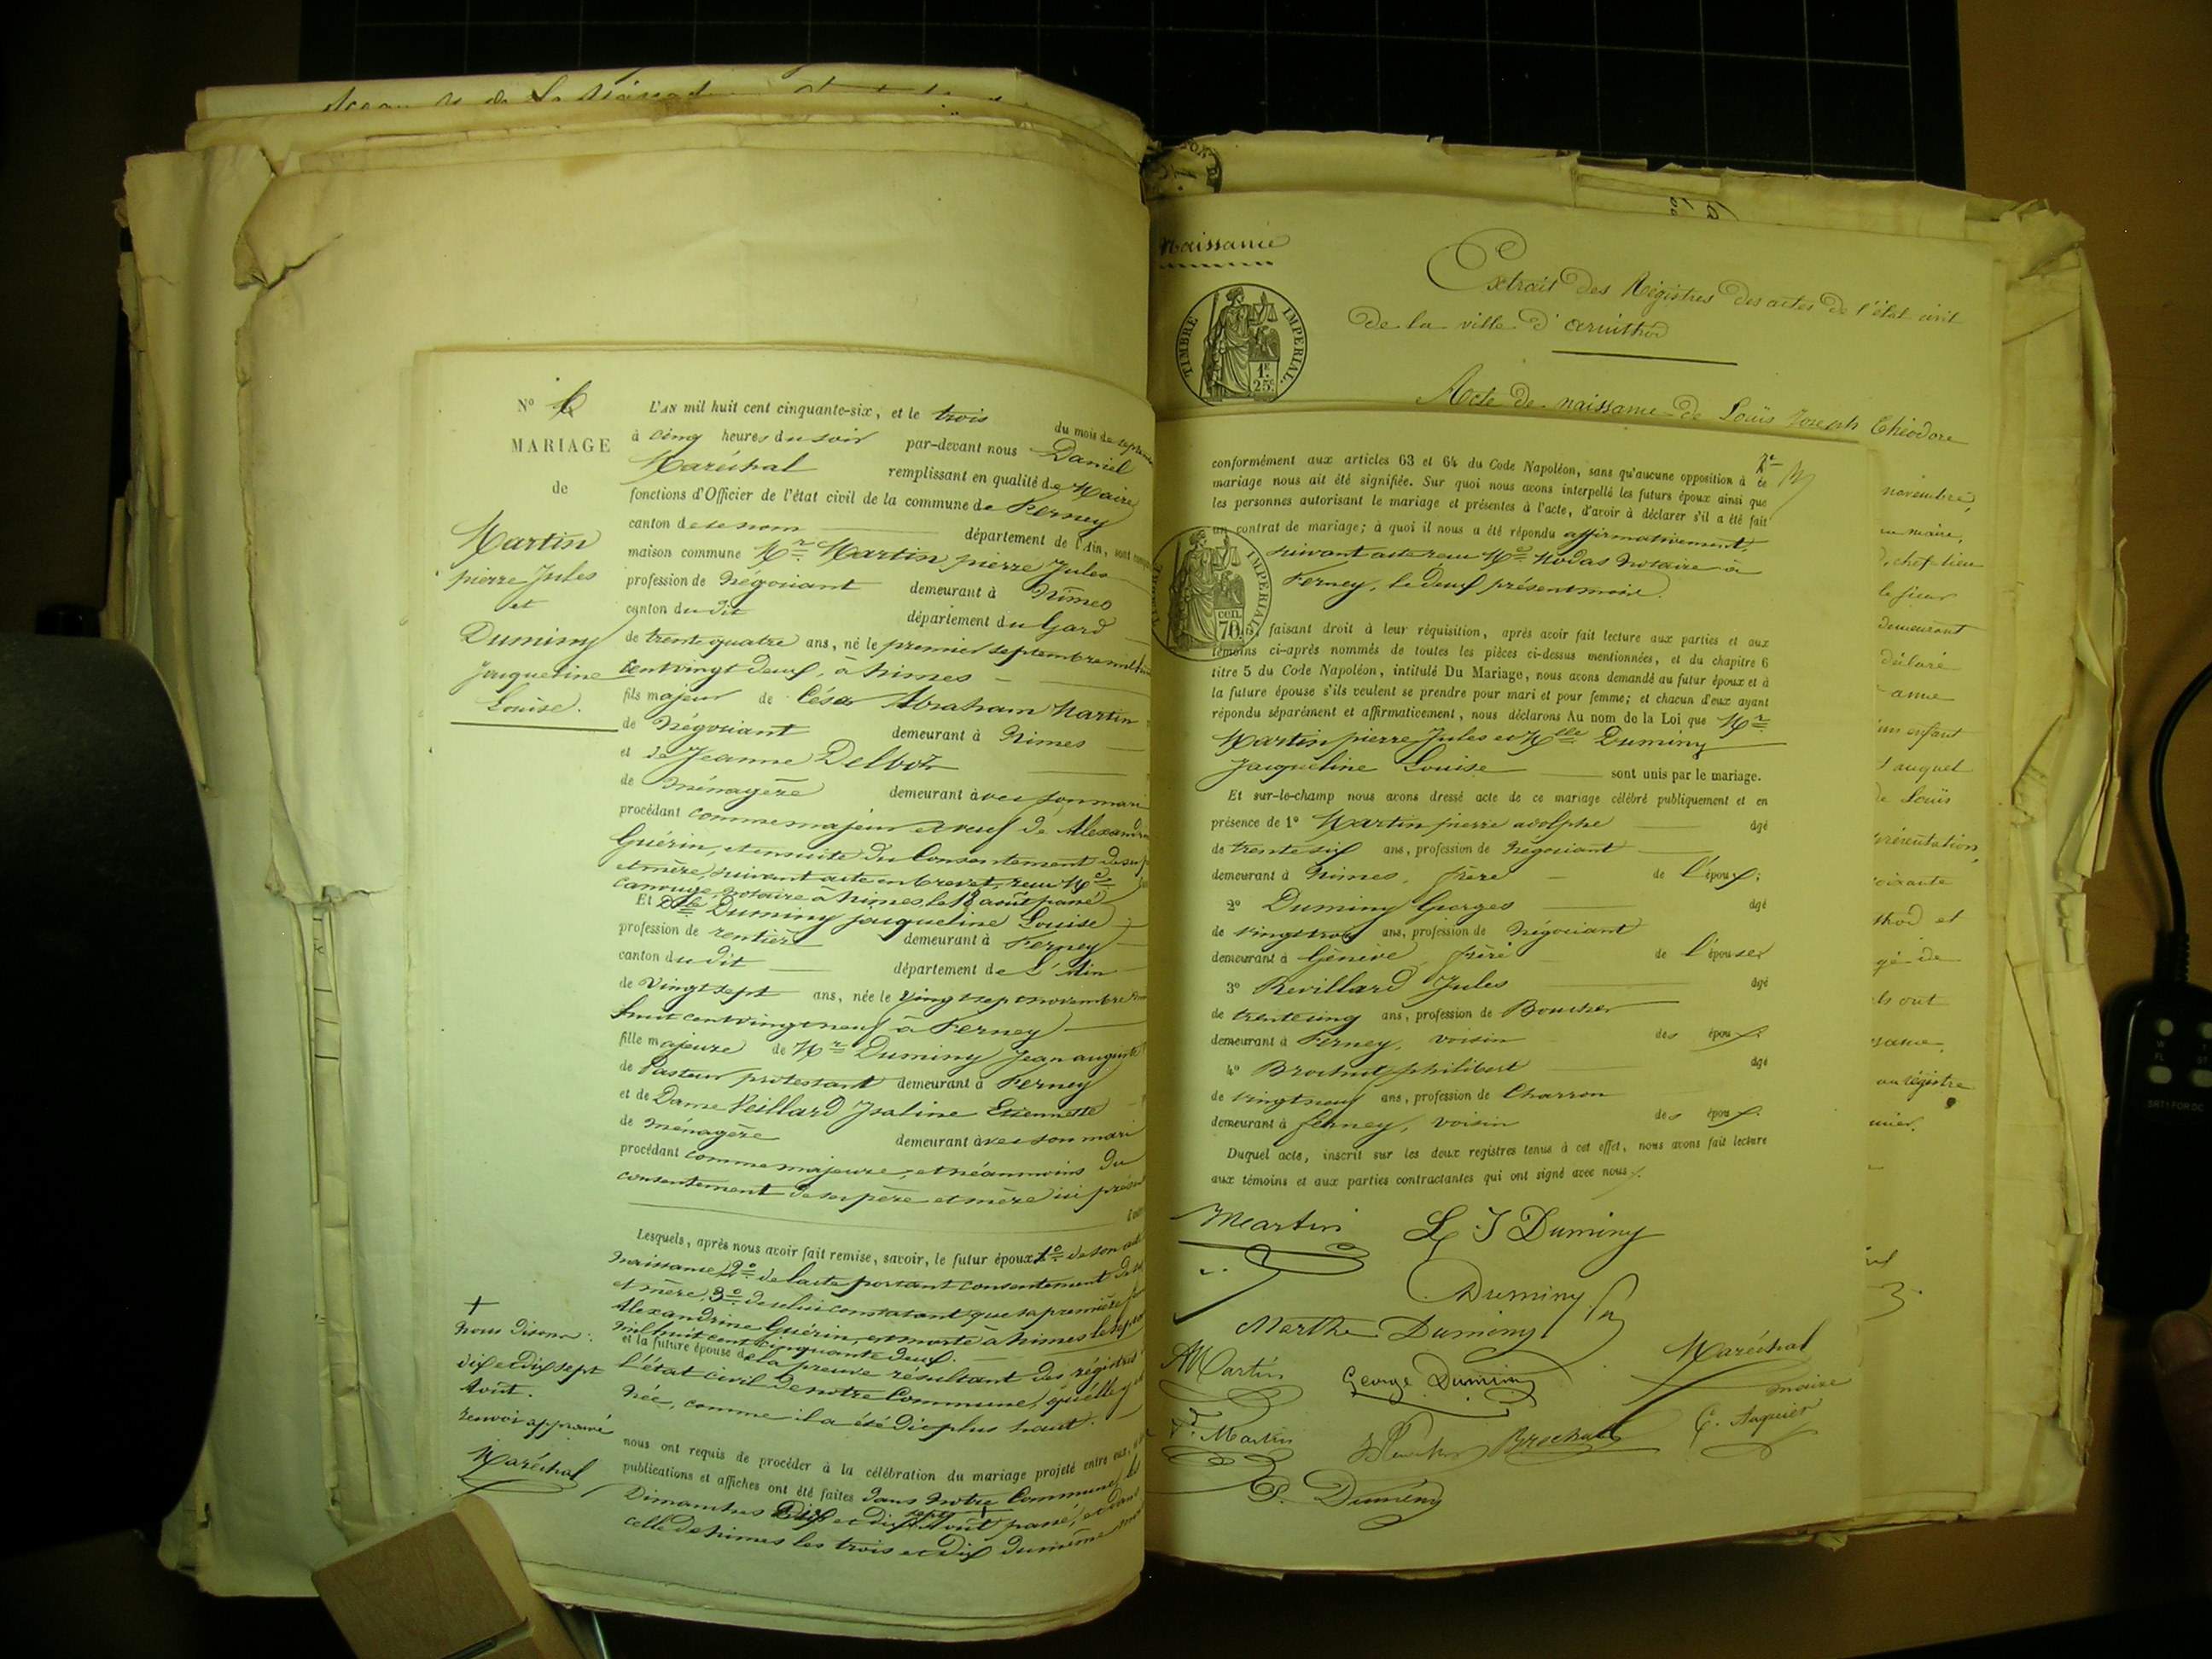 Naissance
Extrait des Régistres des actes de l'état civil
de la ville d'arinthod
TIMBRE IMPERIAL
1F 25c
Acte de naissance de Louis Joseph Théodore
N° 6
MARIAGE
de
Martin
pierre Jules
et
Duminy
Jaqueline
Louise.
L'AN mil huit cent cinquante-six, et le trois du mois de septembre
à cinq heures du soir par-devant nous Daniel
Maréchal remplissant en qualité de Maire
fonctions d'Officier de l'état civil de la commune de Ferney
canton de ce nom département de l'Ain, sont
maison commune Mr Martin pierre Jules
profession de Négociant demeurant à Nîmes
canton du dit département du Gard
de trente quatre ans, né le premier septembre mil huit
cent vingt deux, à Nimes
fils majeur de César Abraham Martin
de Négociant demeurant à Nimes
et de Jeanne Delbos
de Ménagère demeurant avec son mari
procédant comme majeur et veuf de Alexandrine
Guérin, et ensuite du Consentement de ses
et mère, suivant acte en brevet, reçu Me
Canouge notaire à Nimes, le 18 août passé
Et Dlle Duminy jaqueline Louise
profession de rentière demeurant à Ferney
canton du dit département de L'Ain
de Vingt sept ans, née le Vingt sept novembre
huit cent vingt neuf à Ferney
fille majeure de Mr Duminy Jean auguste
de Pasteur protestant demeurant à Ferney
et de Dame Veillard Isaline Etiennette
de Ménagère demeurant avec son mari
procédant comme majeure, et néanmoins du
consentement de ses père et mère ici
Lesquels, après nous avoir fait remise, savoir, le futur époux 1° de son
Naissance, 2° de l'acte portant consentement de
et mère, 3° de celui constatant que sa première
Alexandrine Guérin, est morte à Nimes le
mil huit cent cinquante deux.
et la future épouse de la preuve résultant des régistres
l'état civil de notre Commune, qu'elle y
née, comme il a été dit plus haut.
nous ont requis de procéder à la célébration du mariage projeté entre eux,
publications et affiches ont été faites dans notre Commune, les
Dimanches Dix et dix sept + Août passé, et dans
celle de Nimes les trois et dix du même
+
Nous disons :
dix et dix sept
Août.
renvoi approuvé
Maréchal
conformément aux articles 63 et 64 du Code Napoléon, sans qu'aucune opposition à ce
mariage nous ait été signifiée. Sur quoi nous avons interpellé les futurs époux ainsi que
les personnes autorisant le mariage et présentes à l'acte, d'avoir à déclarer s'il a été fait
un contrat de mariage; à quoi il nous a été répondu affirmativement,
suivant acte reçu Me Nodas Notaire à
Ferney, le deux présent mois.
IMPERIAL
cen. 70
faisant droit à leur réquisition, après avoir fait lecture aux parties et aux
témoins ci-après nommés de toutes les pièces ci-dessus mentionnées, et du chapitre 6
titre 5 du Code Napoléon, intitulé Du Mariage, nous avons demandé au futur époux et à
la future épouse s'ils veulent se prendre pour mari et pour femme; et chacun d'eux ayant
répondu séparément et affirmativement, nous déclarons Au nom de la Loi que Mr
Martin pierre Jules et Mlle Duminy
Jaqueline Louise sont unis par le mariage.
Et sur-le-champ nous avons dressé acte de ce mariage célébré publiquement et en
présence de 1° Martin pierre adolphe âgé
de trente six ans, profession de Négociant
demeurant à Nimes, frère de l'époux;
2° Duminy Georges âgé
de Vingt trois ans, profession de Négociant
demeurant à Genève frère de l'épouse;
3° Revillard Jules âgé
de trente cinq ans, profession de Boucher
demeurant à Ferney, voisin des époux.
4° Brochut philibert âgé
de vingt neuf ans, profession de Charron
demeurant à ferney, voisin des époux.
Duquel acte, inscrit sur les deux registres tenus à cet effet, nous avons fait lecture
aux témoins et aux parties contractantes qui ont signé avec nous.
Martin L J Duminy
Duminy
Marthe Duminy
Maréchal
maire
AMartin George Duminy
Martin Brochut
Duminy
novembre,
maire,
chef-lieu
le sieur
demeurant
déclaré
anne
un enfant
auquel
de Louis
présentation,
thod et
gé de
ont
au régistre